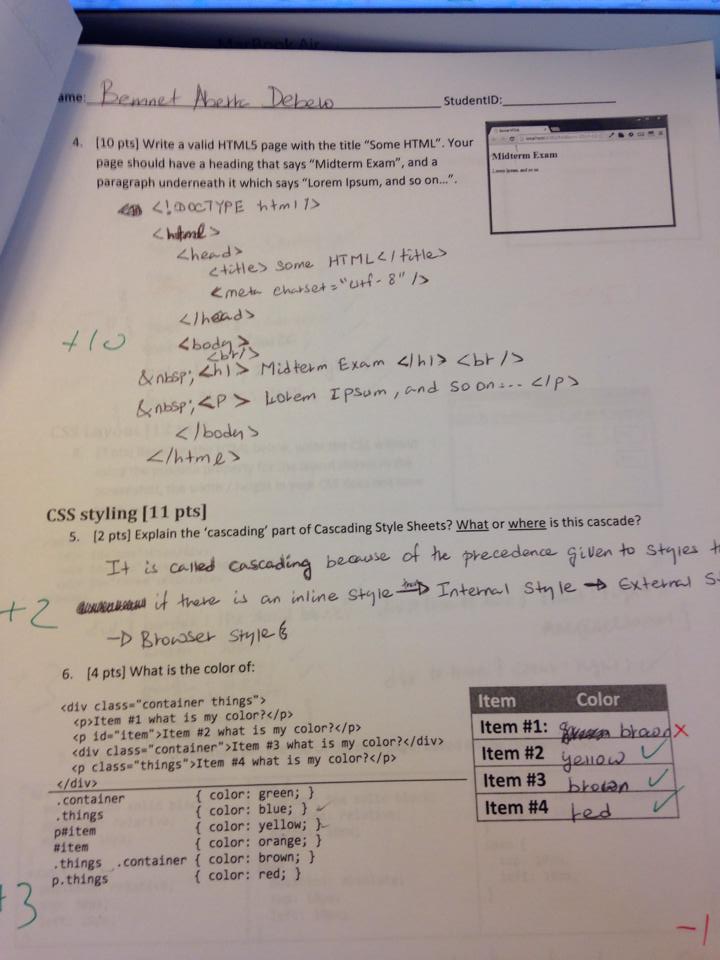 ame: Bemnet Aberra Debelo StudentID:
4. [10 pts] Write a valid HTML5 page with the title “Some HTML”. Your
page should have a heading that says “Midterm Exam”, and a
paragraph underneath it which says “Lorem Ipsum, and so on…”.
Midterm Exam
Lorem Ipsum, and so on
<!DOCTYPE html>
<html>
<head>
<title> Some HTML</title>
<meta charset="utf-8"/>
</head>
+10
<body>
<br/>
&nbsp;<h1> Midterm Exam </h1> <br/>
&nbsp;<P> Lorem Ipsum, and so on... </p>
</body>
</html>
CSS styling [11 pts]
5. [2 pts] Explain the ‘cascading’ part of Cascading Style Sheets? What or where is this cascade?
It is called cascading because of the precedence given to styles
+2 if there is an inline style → Internal Style → External S
→ Browser style
6. [4 pts] What is the color of:
<div class="container things">
<p>Item #1 what is my color?</p>
<p id="item">Item #2 what is my color?</p>
<div class="container">Item #3 what is my color?</div>
<p class="things">Item #4 what is my color?</p>
</div>
Item Color
Item #1: brown ×
Item #2 yellow ✓
Item #3 brown ✓
Item #4 red ✓
.container { color: green; }
.things { color: blue; }
p#item { color: yellow; }
#item { color: orange; }
.things .container { color: brown; }
p.things { color: red; }
+3
-1